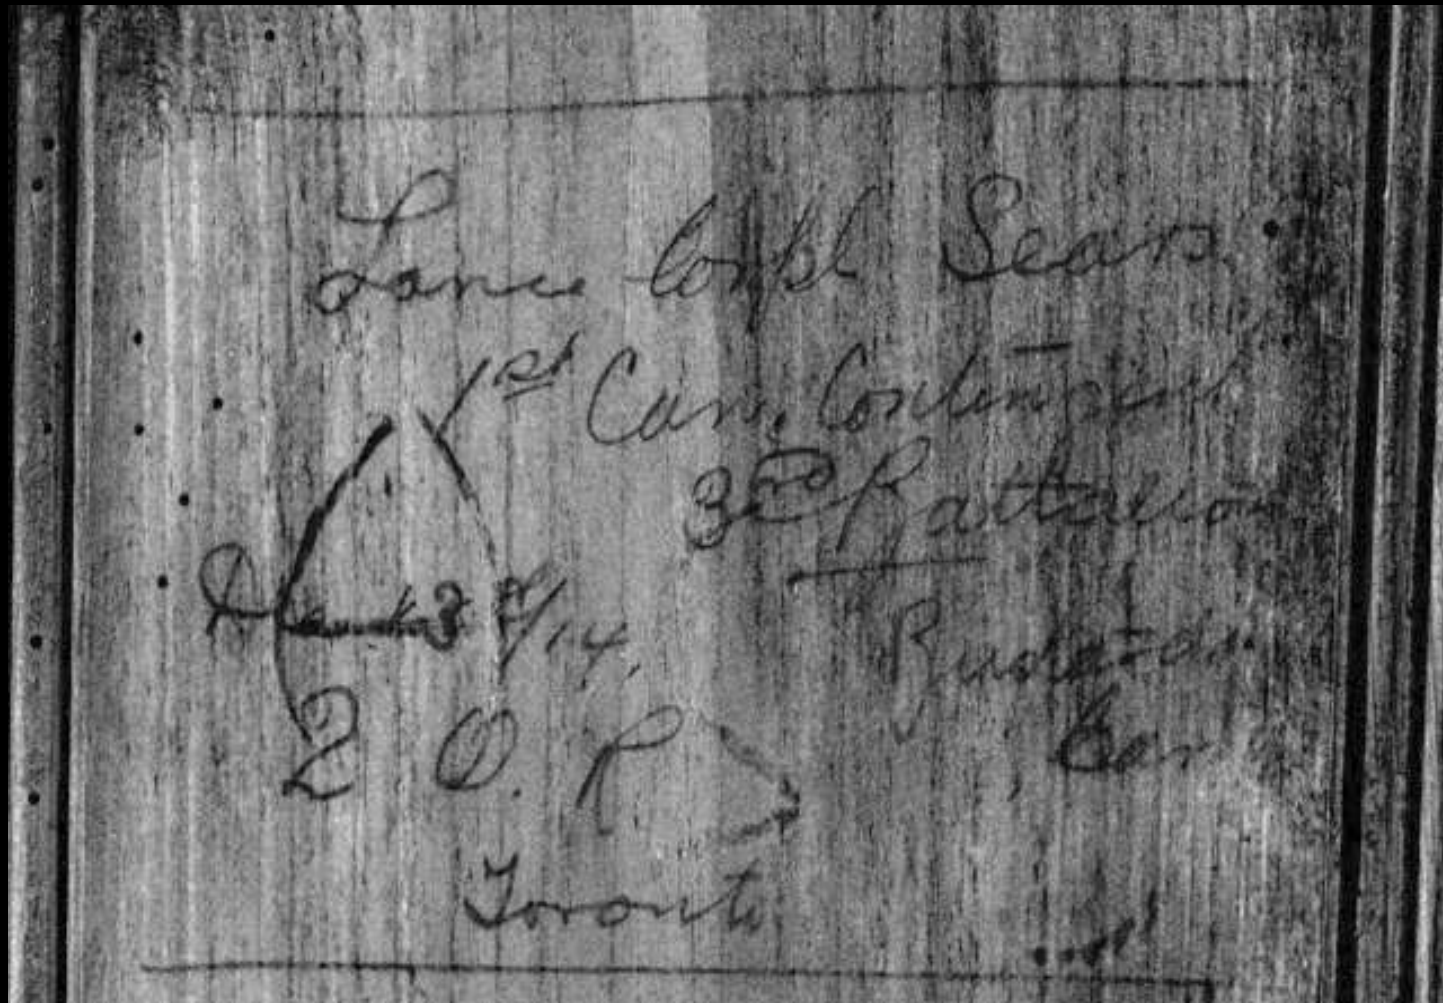 Lance Corpl Sears
1st Can. Contingent
3rd Battalion
Dec 3rd/14,
Q. O. R
Can
Toronto